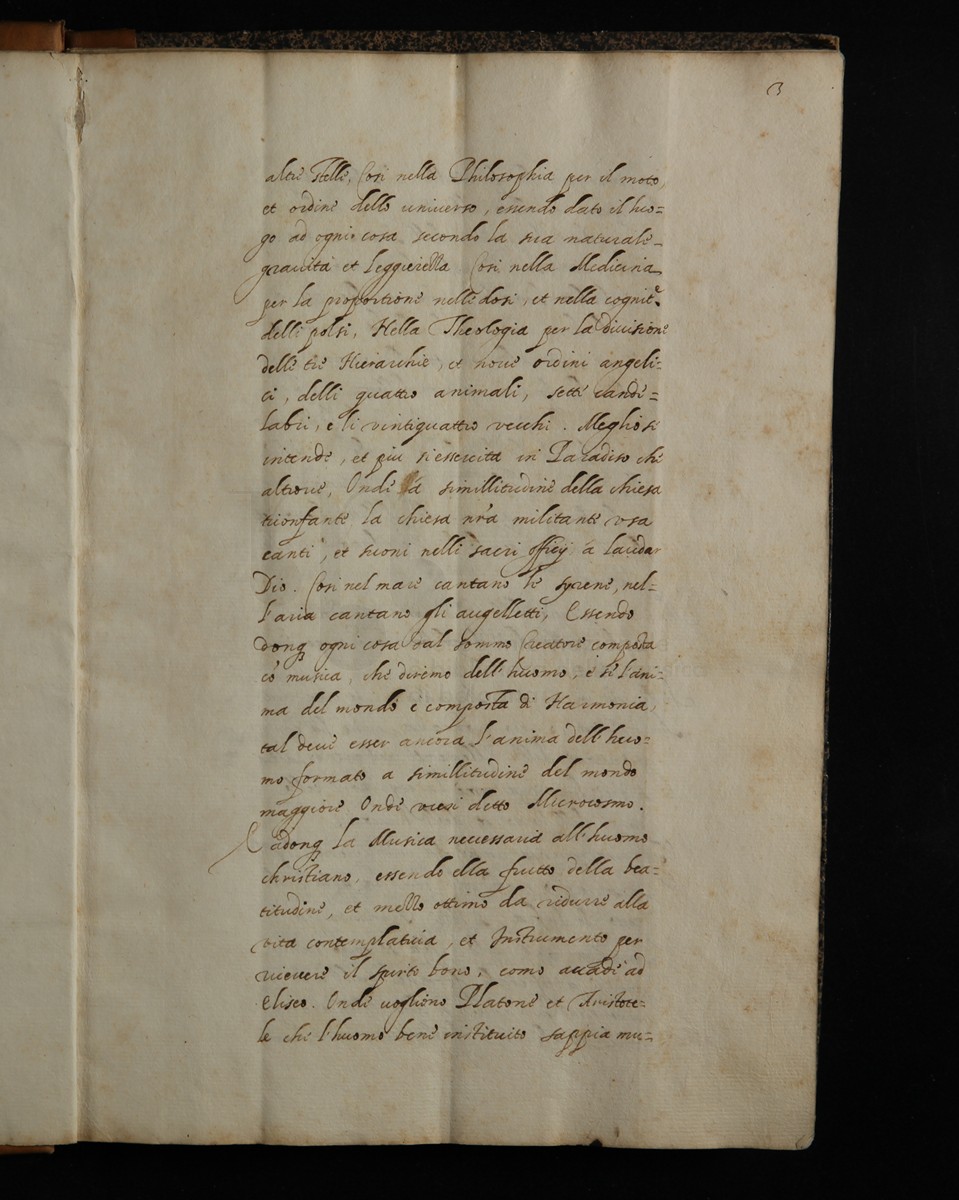 3
altre stelle. Cosi nella Philosophia per il moto,
et ordine dello universo, essendo dato il luo=
go ad ogni cosa secondo la sua naturale
gravità et leggierezza. Cosi nella Medicina
per la proportione nelle dosi, et nella cognit.e
delli polsi, Nella Theologia per la divisione
delle tre Hierarchie, et nove ordini angeli=
ci, delli quattro animali, sette cande=
labri, e li vintiquattro vecchi. Meglio si
intende, et piu si essercita in Paradiso che
altrove, Onde a simillitudine della chiesa
trionfante la chiesa nr̃a militante usa
canti, et suoni nelli sacri officij a laudar
Dio. Cosi nel mare cantano le syrene, nel=
l'aria cantano gli augelletti, Essendo
donq ogni cosa dal sommo Creatore composta
cõ musica, che diremo dell'huomo, e se l'ani=
ma del mondo è composta di Harmonia,
tal deve esser ancora l'anima dell'huo=
mo formato a simillitudine del mondo
maggiore Onde viesi detto Microcosmo.
E adonq la Musica necessaria all'huomo
christiano, essendo ella frutto della bea=
titudine, et mezzo ottimo da ridurre alla
vita contemplativa, et Instrumento per
ricevere il spirto bono, como accade ad
Eliseo. Onde vogliono Platone et Aristote=
le che l'huomo bene instituito sappia mu=